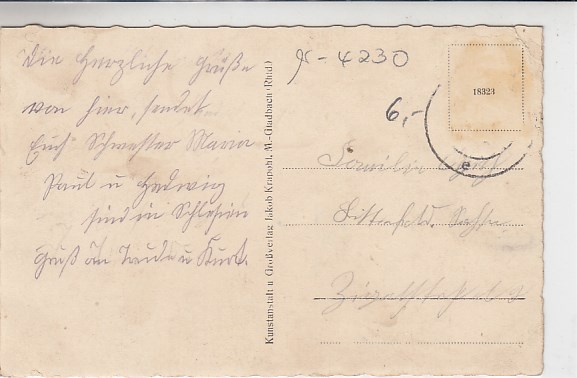 Die herzliche Grüße
von hier, sendet
Euch Schwester Maria
Paul u Hedwig
sind in Schlesien
Gruß an u Kurt.
Kunstanstalt u. Großverlag Jakob Krapohl, M.-Gladbach (Rhd.)
4230
6,-
18323
Familie
Bitterfeld, Sachs